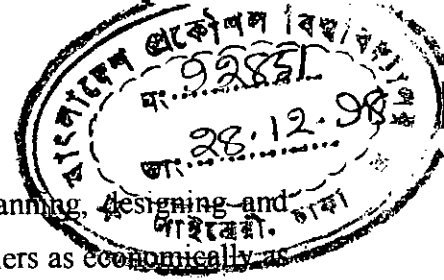 বাংলাদেশ প্রকৌশল বিশ্ববিদ্যালয়
নং:
তাং 28.12.98
লাইব্রেরী. ঢাকা
anning, designing and
ers as economically as